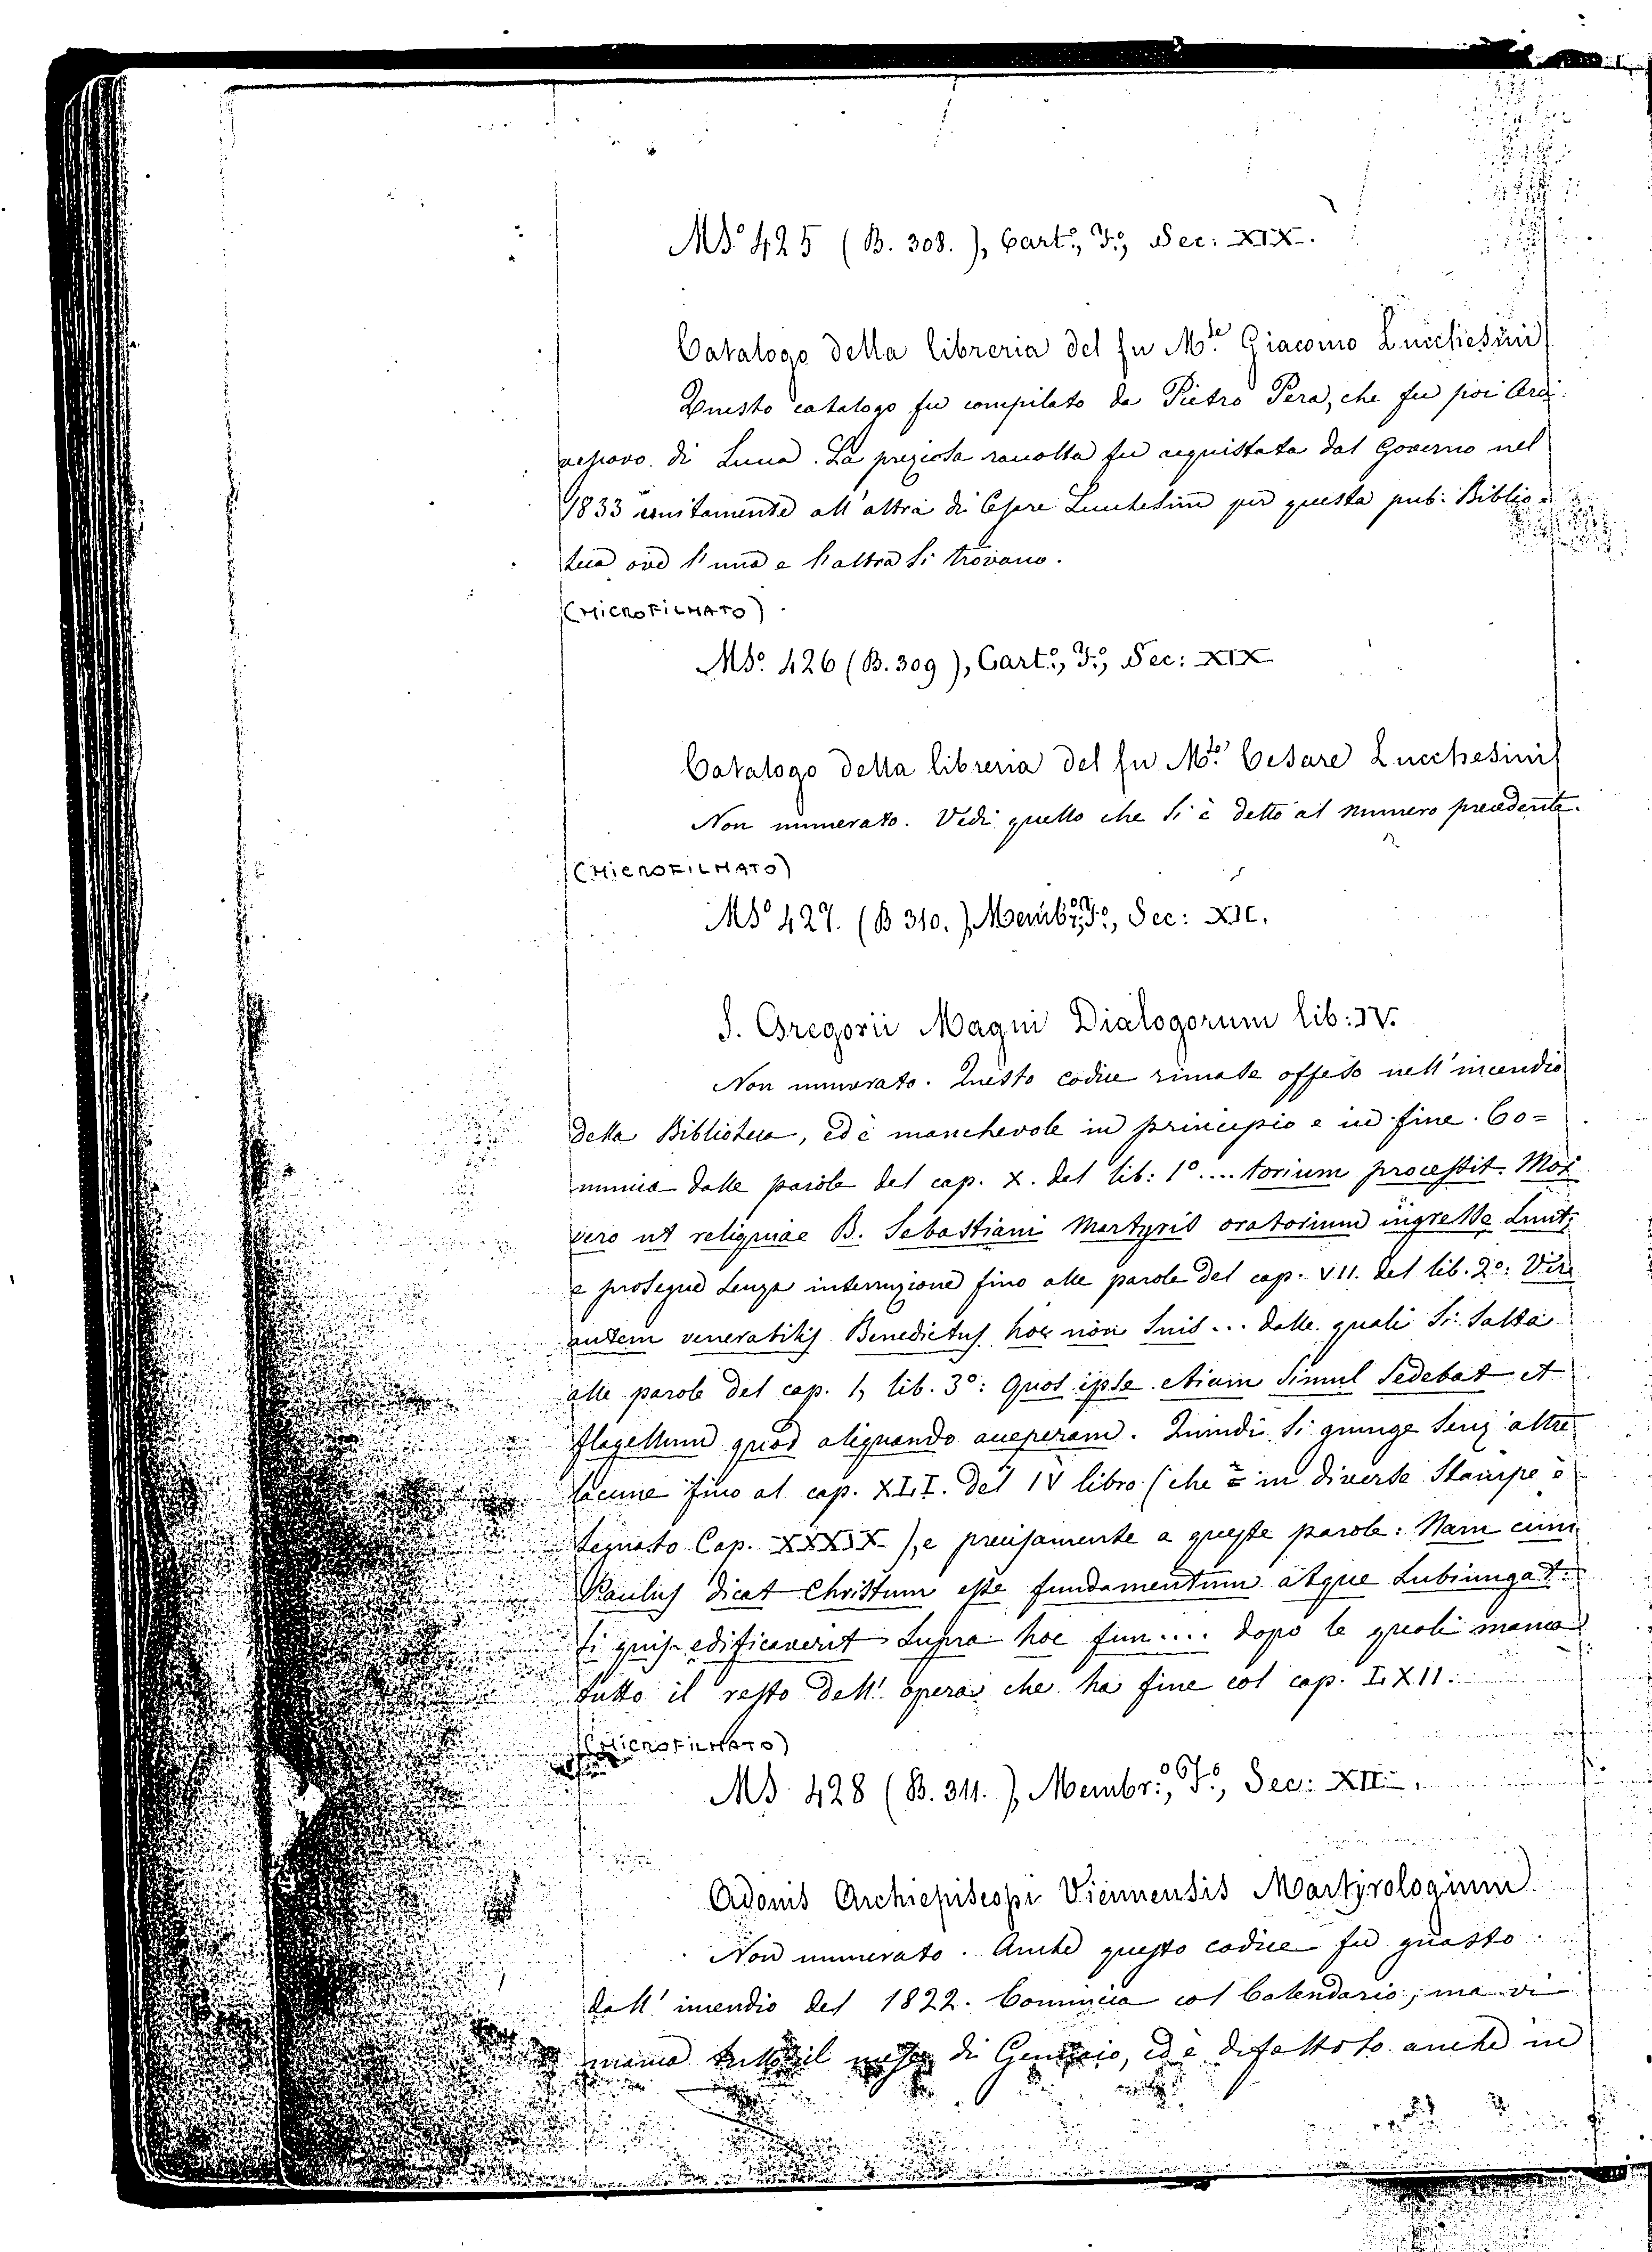 Ms. 425 (B. 308.), Cart.º, F.º, Sec: XIX.
Catalogo della libreria del fu M.se Giacomo Lucchesini
Questo catalogo fu compilato da Pietro Pera, che fu poi Arci-
vescovo di Lucca. La preziosa raccolta fu acquistata dal Governo nel
1833 unitamente all'altra di Cesare Lucchesini per questa pub: Biblio=
teca ove l'una e l'altra si trovano.
(MICROFILMATO)
Ms. 426 (B. 309), Cart.º, F.º, Sec: XIX
Catalogo della libreria del fu M.se Cesare Lucchesini
Non numerato. Vedi quello che si è detto al numero precedente.
(MICROFILMATO)
Ms 427. (B 310.), Membr.º, F.º, Sec: XII.
S. Gregorii Magni Dialogorum lib: IV.
Non numerato. Questo codice rimase offeso nell'incendio
della Biblioteca, ed è manchevole in principio e in fine. Co=
mincia dalle parole del cap. X. del lib: 1º .... torium processit. Mox
vero ut reliquiae B. Sebastiani Martyris oratorium ingresse sunt,
e prosegue senza interruzione fino alle parole del cap. VII. del lib. 2º: Vir
autem venerabilis Benedictus hoc non suis ... dalle quali si salta
alle parole del cap. 1, lib. 3º: Quos ipse etiam simul sedebat et
flagellum quod aliquando acceperam. Quindi si giunge senz'altre
lacune fino al cap. XLI. del IV libro (che in diverse stampe è
segnato Cap. XXXIX), e precisamente a queste parole: Nam cum
Paulus dicat Christum esse fundamentum atque subiungat:
si quis edificaverit supra hoc fun.... dopo le quali manca
tutto il resto dell'opera che ha fine col cap. LXII.
(MICROFILMATO)
Ms 428 (B. 311.), Membr.º, F.º, Sec: XII.
Adonis Archiepiscopi Viennensis Martyrologium
Non numerato. Anche questo codice fu guasto
dall'incendio del 1822. Comincia col Calendario, ma vi
manca tutto il mese di Gennaio, ed è difettoso anche in